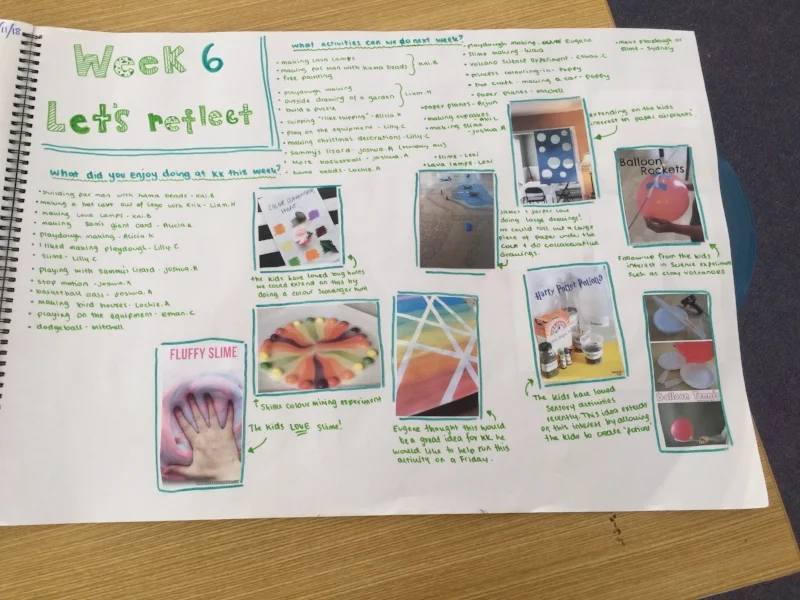 /11/18
Week 6
Let's reflect
what did you enjoy doing at KK this week?
• building pac man with hama beads - Kai.B
• making a bat cave out of lego with Erik - Liam.H
• making lava lamps - Kai.B
• making Sam's giant card - Alicia.K
• playdough making - Alicia.K
• I liked making playdough - Lilly.C
• slime - Lilly.C
• playing with Sammy's lizard - Joshua.A
• stop motion - Joshua.A
• basketball class - Joshua.A
• making bird houses - Lochie.A
• playing on the equipment - Ethan.C
• dodgeball - mitchell
what activities can we do next week?
• making lava lamps
• making pac man with hama beads
• free painting
Kai.B
• playdough making
• outside drawing of a garden
• build a puzzle
Liam.H
• skipping "like skipping" - Alicia.K
• play on the equipment - Lilly.C
• making christmas decorations - Lilly.C
• Sammy's lizard - Joshua.A (Monday)
• More basketball - Joshua.A
• hama beads - Lochie.A
• paper planes - Arjun
• making cupcakes
• making slime
- Joshua.A
• slime - Lexi
• Lava lamps - Lexi
• playdough making - Eugene
• slime making - Kiara
• volcano science experiment - Ethan.C
• princess colouring-in - Poppy
• craft - making a car - Poppy
• paper planes - mitchell
• more playdough or
slime - Sydney
Extending on the kids
interest on paper airplanes.
Balloon
Rockets
Follow-up from the kids
interest in science experiments
such as clay volcanoes
James & Jasper love
doing large drawings!
we could roll out a large
piece of paper under the
COLA & do collaborative
drawings.
COLOR SCAVENGER
HUNT
the kids have loved bug hunts
we could extend on this by
doing a colour scavenger hunt
FLUFFY SLIME
The kids LOVE slime!
Skittles colour mixing experiment
Eugene thought this would
be a great idea for KK. he
would like to help run this
activity on a Friday.
Harry Potter Potions
The kids have loved
sensory activities
recently. This idea extends
on this interest by allowing
the kids to create 'potions'
Balloon Tennis